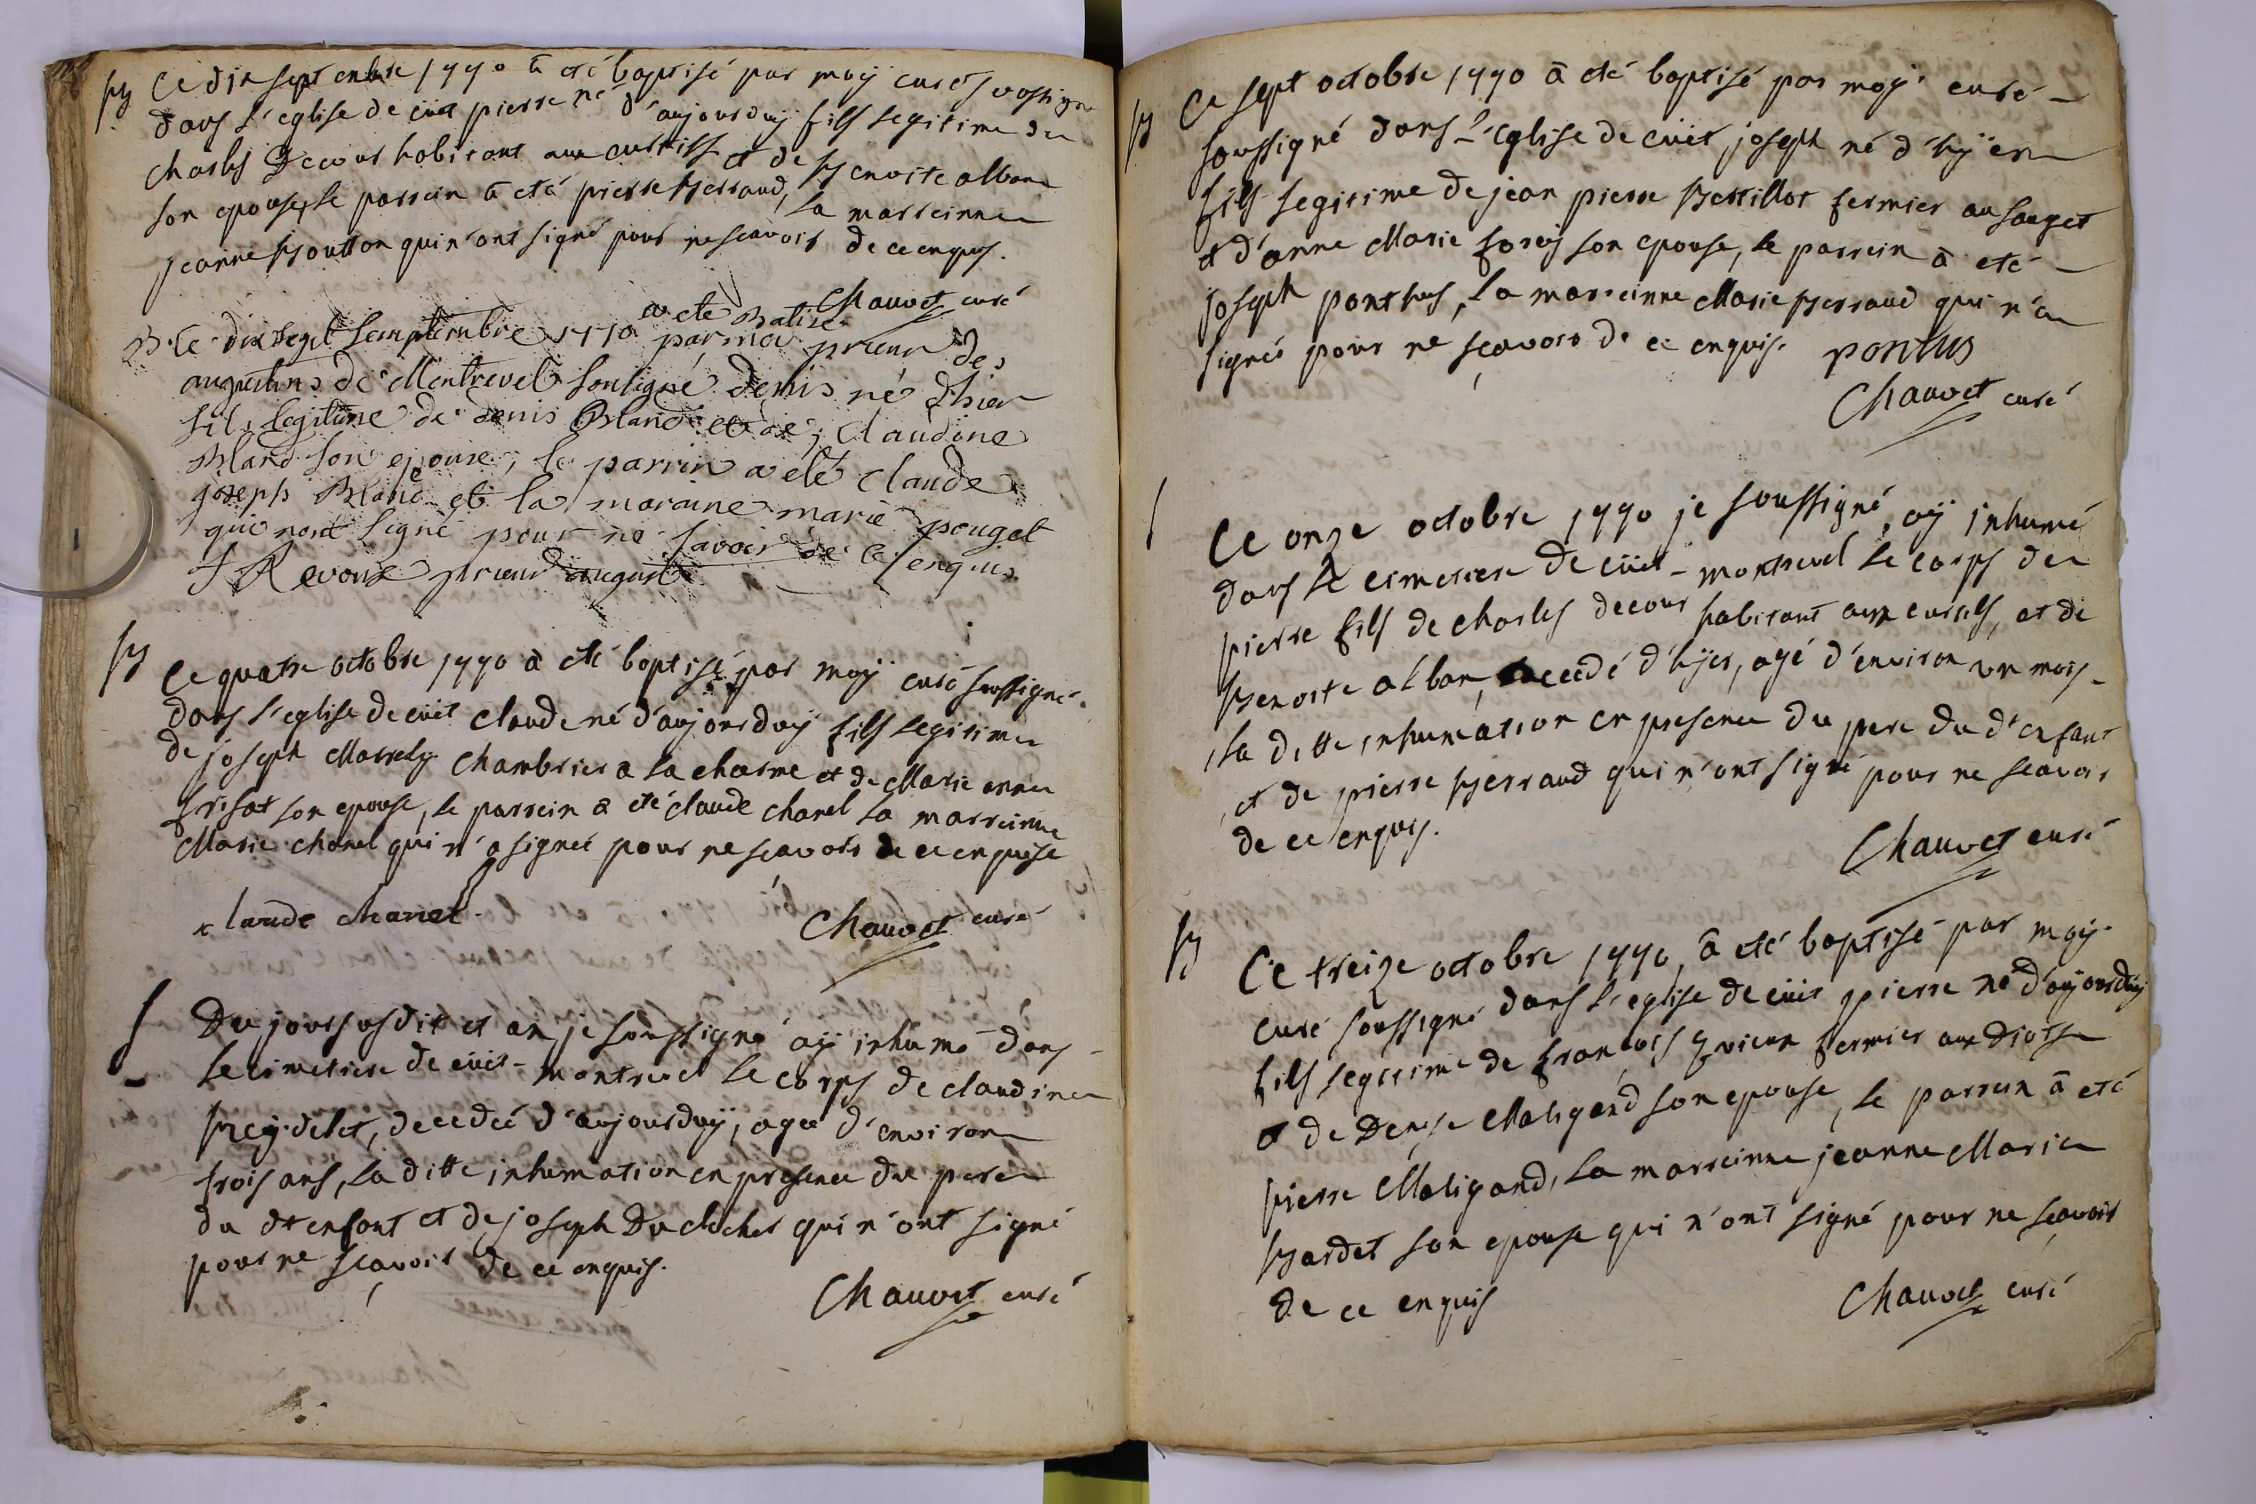 B Ce dix septembre 1770 a eté baptisé par moÿ curé soussigné
dans l'eglise de cüet pierre né d'aujourduÿ fils legitime de
charles Decour habitant aux curtils et de Benoite alban
son epouse, le parrein à eté pierre Berraud, la marreinne
jeanne Boutton qui n'ont signé pour ne scavoir de ce enquis.
Chauvet curé
B. Ce dix sept semptembre 1770 a ete Batize par moi prieur des
augustins de Montrevel soussigné denis né d'hier
fils legitime de denis Bland et de claudine
Bland son epouse, le parrin a été claude
joseph Bland et la maraine marie pouget
qui nont signé pour ne savoir de ce enquis
f Revoux prieur august
B Ce quatre octobre 1770 à eté baptisé par moÿ curé soussigné
dans l'eglise de cüet claude né d'aujourduÿ fils legitime
de joseph Marrely chambrier a la charme et de Marie anne
frisat son epouse, le parrein a eté claude chanel la marreinne
Marie chanel qui n'a signé pour ne scavoir de ce enquise
claude chanel
Chauvet curé
f Du jour susdit et an je soussigné aÿ inhumé dans
le cimetiere de cüet-montrevel le corps de claudine
Reydelet, decedée d'aujourduÿ, agée d'environ
trois ans, la ditte inhumation en presence du pere
du dt enfant et de joseph Duclocher qui n'ont signé
pour ne scavoir de ce enquis.
Chauvet curé
B Ce sept octobre 1770 à eté baptisé par moÿ curé
soussigné dans l'eglise de cüet, joseph né d'hÿer
fils legitime de jean pierre Bertillot fermier au sauget
et d'anne Marie forey son epouse, le parrein à eté
joseph ponthus, la marreinne Marie Berraud qui n'a
signée pour ne scavoir de ce enquis. ponthus
Chauvet curé
f Ce onze octobre 1770 je soussigné, aÿ inhumé
dans le cimetiere de cüet-montrevel le corps de
pierre fils de charles decour habitant aux curtils, et de
Benoite alban, decedé d'hÿer, agé d'environ un mois
la ditte inhumation en presence du pere du dt enfant
et de pierre Berraud qui n'ont signé pour ne scavoir
de ce enquis.
Chauvet curé
B Ce treize octobre 1770, à eté baptisé par moÿ
curé soussigné dans l'eglise de cüet pierre né d'aujourduÿ
fils legitime de françois fermier aux
et de Denise Maligand son epouse, le parrein à eté
pierre Maligand, la marreinne jeanne Marie
Bardet son epouse qui n'ont signé pour ne scavoir
de ce enquis
Chauvet curé